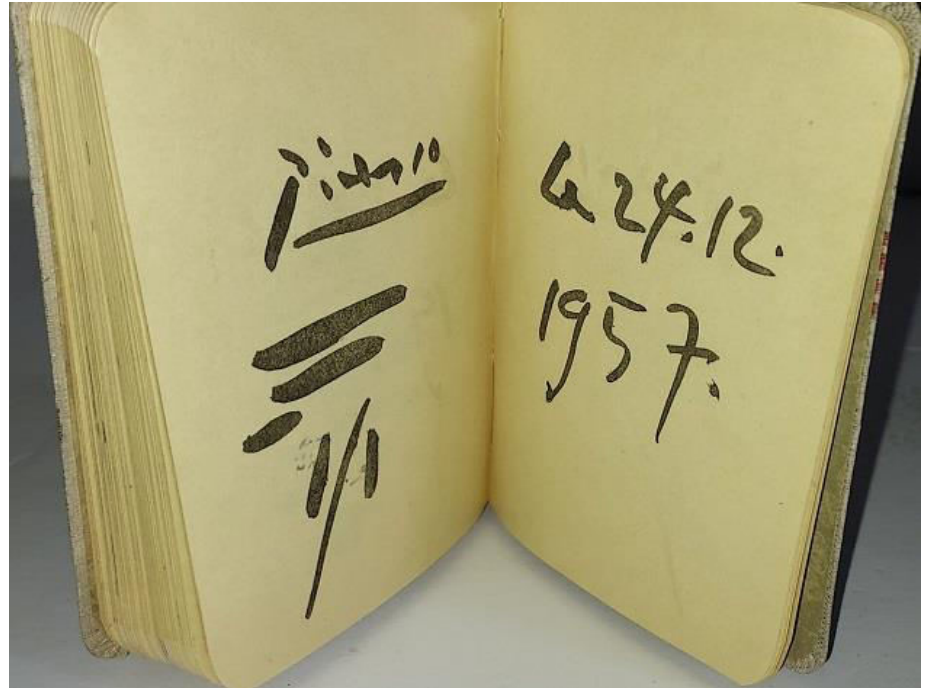 Picasso
1/1
Le 24.12.
1957.